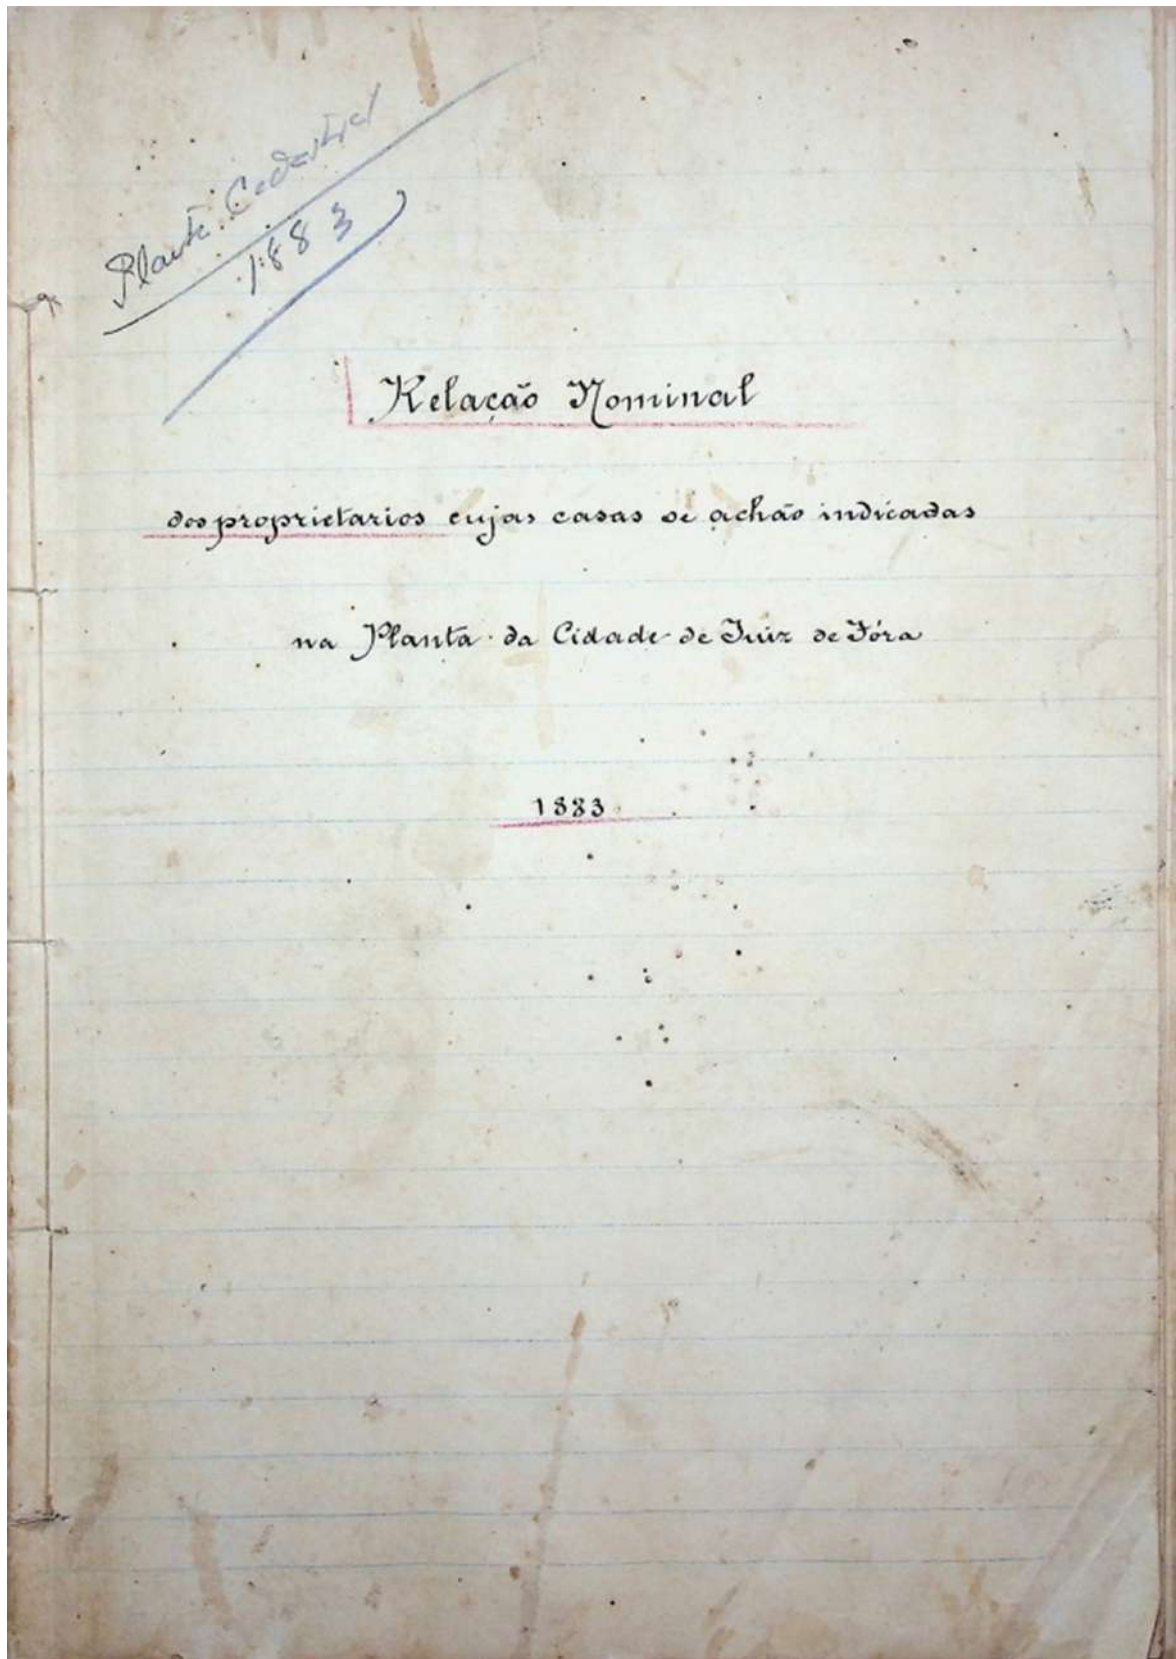 Planta Cadastral
1883
Relação Nominal
dos proprietarios cujas casas se achão indicadas
na Planta da Cidade de Juiz de Fóra
1883